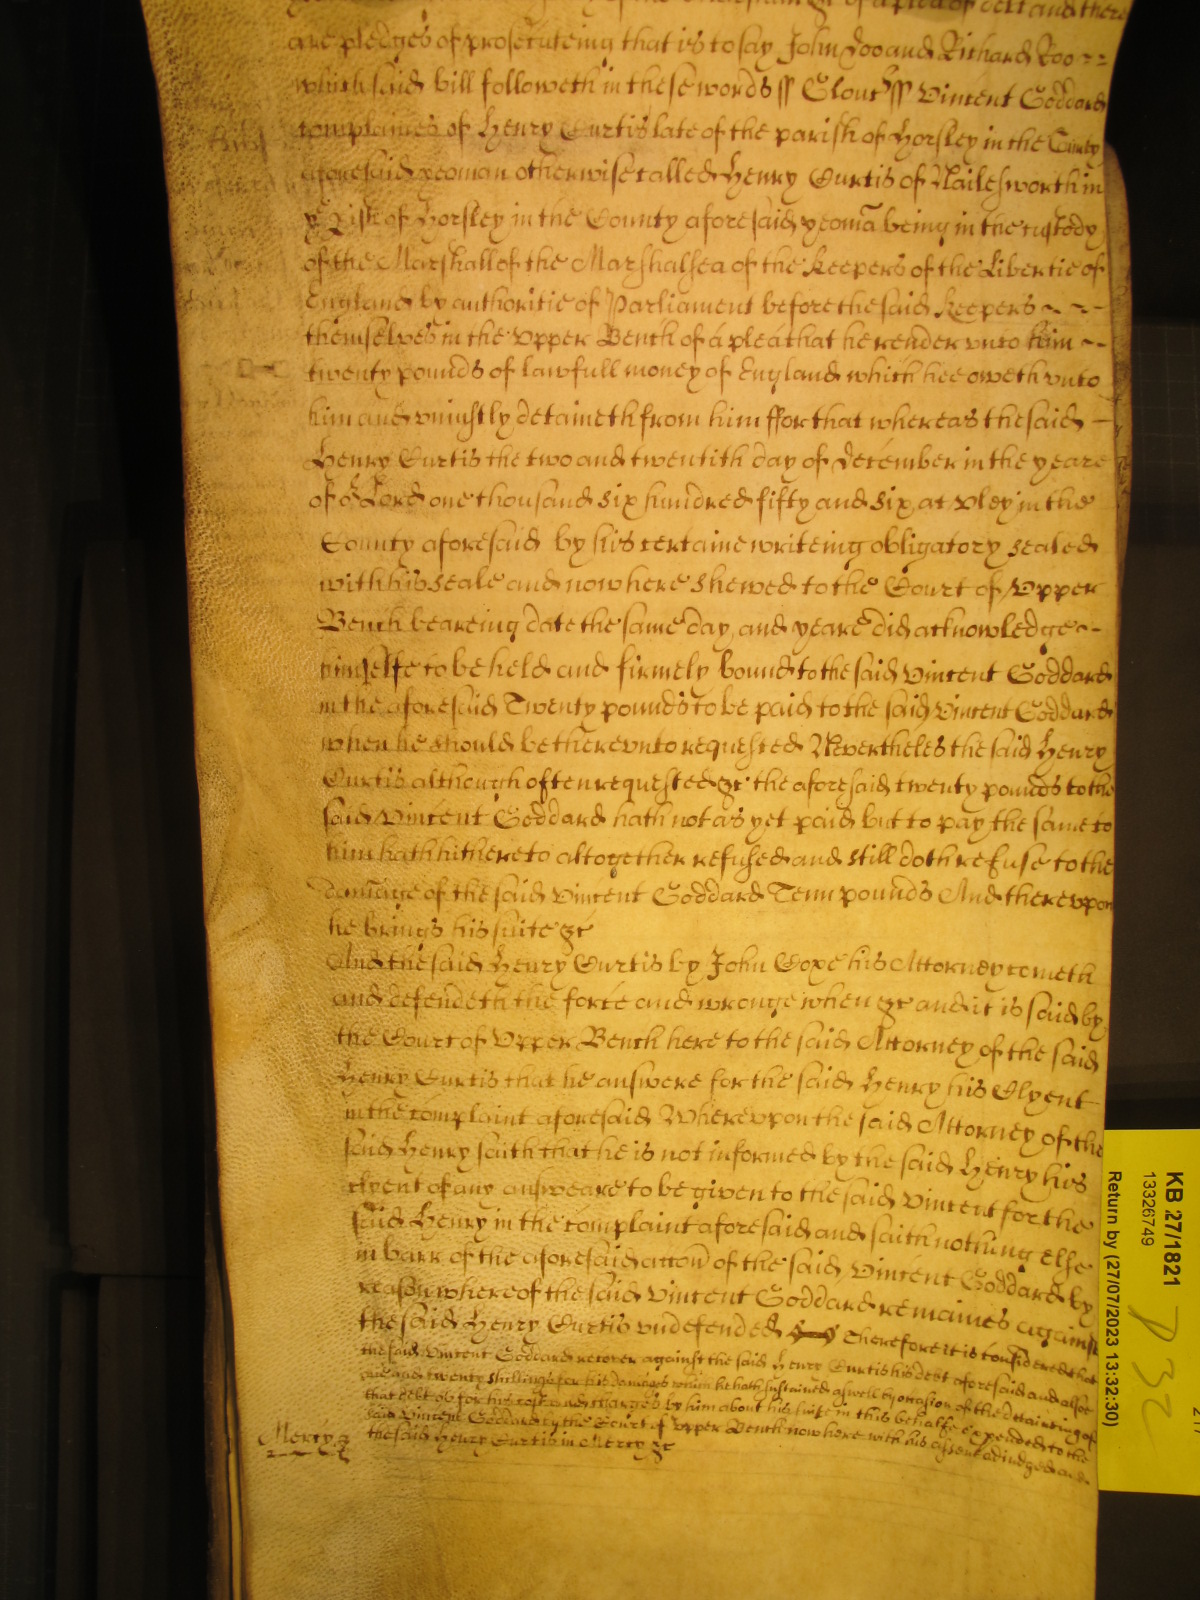 of a plea of debt and there
are pledges of prosecuteing that is to say John Doo and Richard Roo
which said bill followeth in these words ss Glouc ss Vincent Goddard
complaines of Henry Curtis late of the parish of Horsley in the County
aforesaid yeoman otherwise called Henry Curtis of Nailesworth in
ye Pish of Horsley in the County aforesaid yeomā being in the custody
of the Marshall of the Marshalsea of the Keepers of the Libertie of
England by authoritie of Parliament before the said Keepers
themselves in the Vpper Bench of a plea that he render vnto him
twenty pounds of lawfull money of England which hee oweth vnto
him and vniustly detaineth from him ffor that whereas the said
Henry Curtis the two and twentith day of December in the yeare
of or Lord one thousand six hundred fifty and six at Vley in the
County aforesaid by his certaine writeing obligatory sealed
with his seale and now here shewed to the Court of Vpper
Bench beareing date the same day and yeare did acknowledge
himselfe to be held and firmely bound to the said Vincent Goddard
in the aforesaid Twenty pounds to be paid to the said Vincent Goddard
when he should be therevnto requested Nevertheles the said Henry
Curtis although often requested &c the aforesaid twenty pounds to the
said Vincent Goddard hath not as yet paid but to pay the same to
him hath hithereto altogether refused and still doth refuse to the
damage of the said Vincent Goddard Tenn pounds And therevpon
he brings his suite &c
And the said Henry Curtis by John Cope his Attorney cometh
and defendeth the force and wronge when &c and it is said by
the Court of Vpper Bench here to the said Attorney of the said
Henry Curtis that he answere for the said Henry his Clyent
in the complaint aforesaid Wherevpon the said Attorney of the
said Henry saith that he is not informed by the said Henry his
clyent of any answeare to be given to the said Vincent for the
said Henry in the complaint aforesaid and saith nothing else
in barr of the aforesaid accon of the said Vincent Goddard by
reason whereof the said Vincent Goddard remaines against
the said Henry Curtis vndefended Therefore it is considered that
the said Vincent Goddard recover against the said Henry Curtis his debt aforesaid and alsoe
one and twenty shillings for his damages which he hath sustained aswell by occasion of the detaining of
that debt as for his costs and charges by him about his suite in this behalfe expended to the
said Vincent Goddard by the Court of Vpper Bench now here with his assent adiudged and
Mercy & the said Henry Curtis in Mercy &c
KB 27/1821
13326749
Return by (27/07/2023 13:32:30)